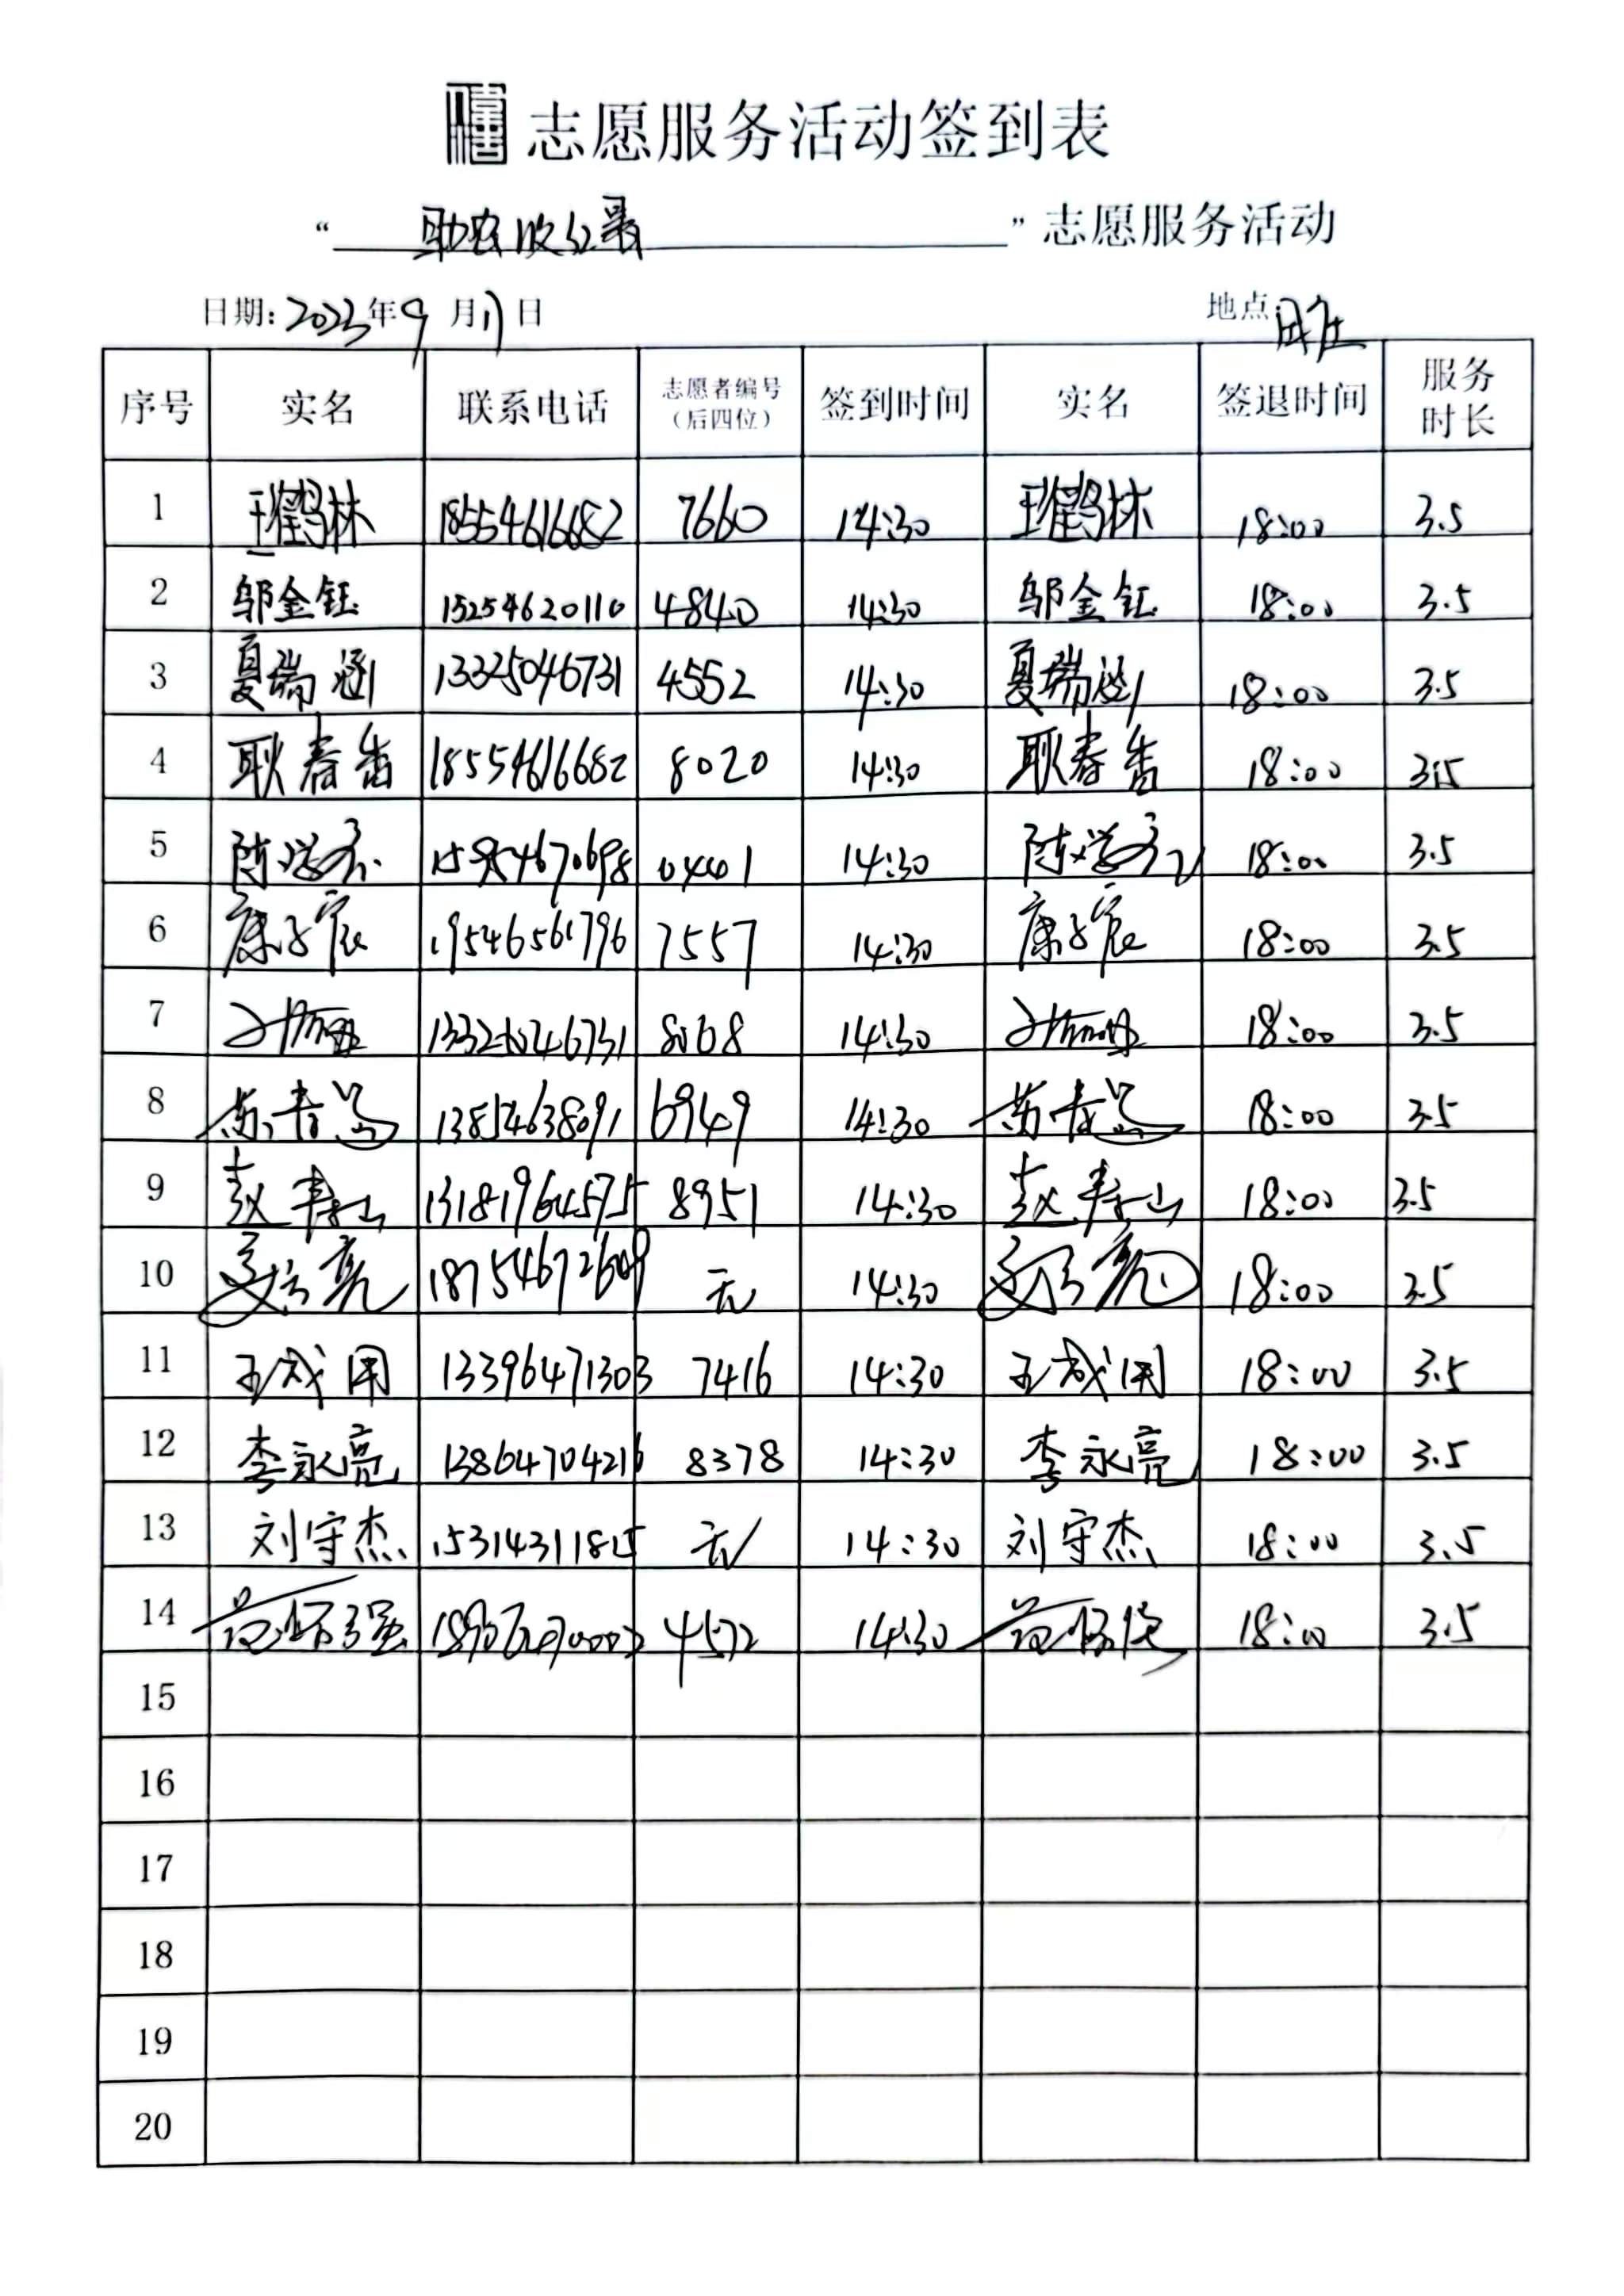 志愿服务活动签到表
“助农收红果”志愿服务活动
日期:2023年9月17日 地点:
序号 实名 联系电话 志愿者编号(后四位) 签到时间 实名 签退时间 服务时长
1 王鹤林 18554616682 7660 14:30 王鹤林 18:00 3.5
2 邬金钰 15254620110 4840 14:30 邬金钰 18:00 3.5
3 夏瑞涵 13325046731 4552 14:30 夏瑞涵 18:00 3.5
4 耿春香 18554616682 8020 14:30 耿春香 18:00 3.5
5 14:30 18:00 3.5
6 康子宸 19546561796 7557 14:30 康子宸 18:00 3.5
7 8068 14:30 18:00 3.5
8 13854638091 6949 14:30 18:00 3.5
9 赵寿山 13181964575 8951 14:30 赵寿山 18:00 3.5
10 18754672609 无 14:30 18:00 3.5
11 王成用 13396471303 7416 14:30 王成用 18:00 3.5
12 李永亮 13864704216 8378 14:30 李永亮 18:00 3.5
13 刘守杰 15314311815 无 14:30 刘守杰 18:00 3.5
14 4572 14:30 18:00 3.5
15
16
17
18
19
20